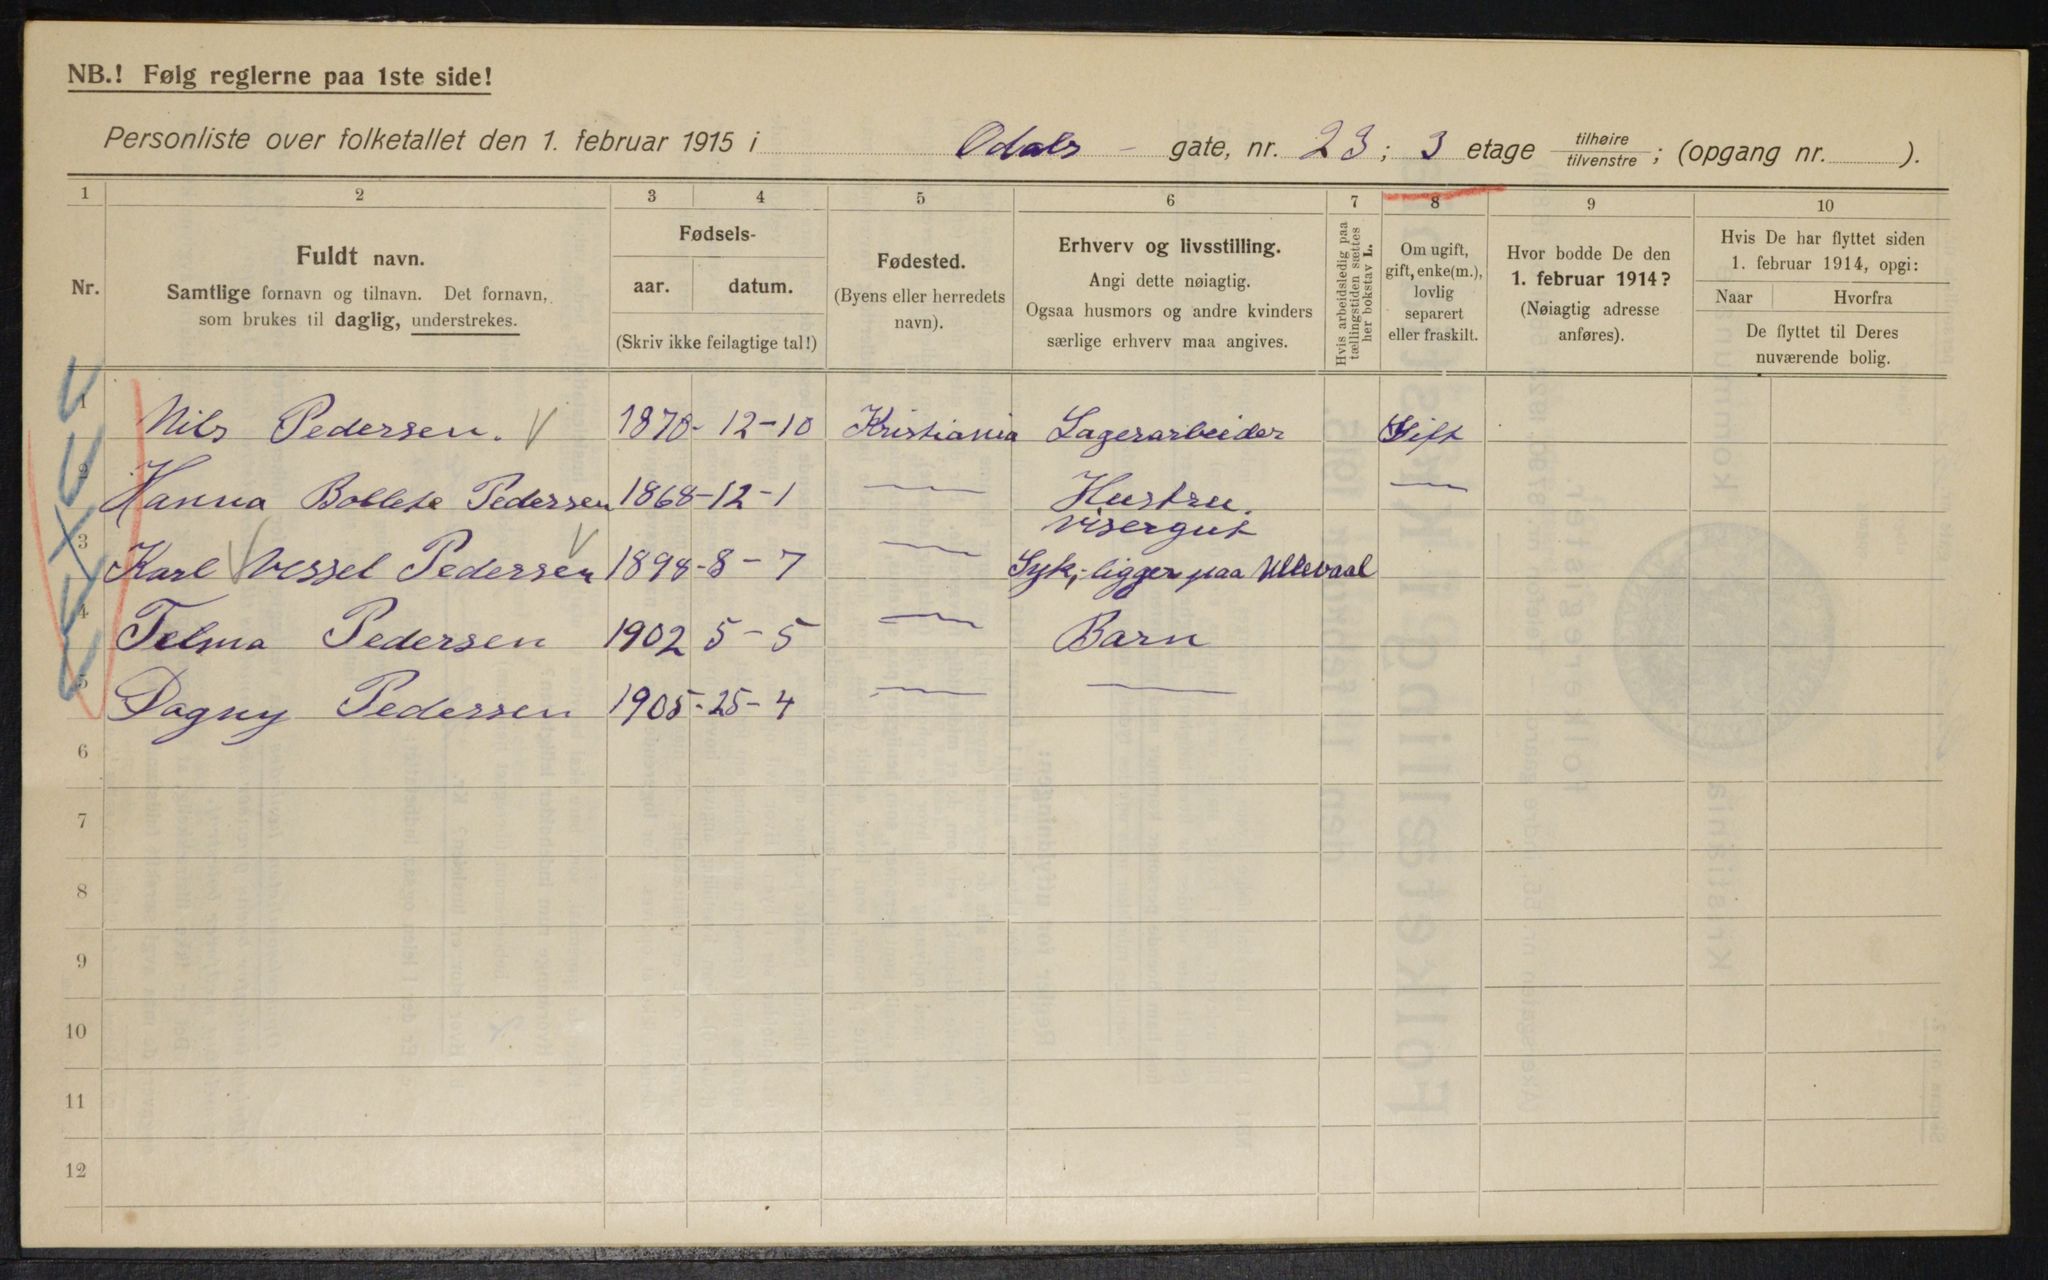 NB.! Følg reglerne paa 1ste side!
Personliste over folketallet den 1. februar 1915 i Odals - gate, nr. 23; 3 etage tilhøire / tilvenstre ; (opgang nr. ).
1 2 3 4 5 6 7 8 9 10
Nr.
Fuldt navn.
Samtlige fornavn og tilnavn. Det fornavn,
som brukes til daglig, understrekes.
Fødsels-
aar. datum.
(Skriv ikke feilagtige tal!)
Fødested.
(Byens eller herredets
navn).
Erhverv og livsstilling.
Angi dette nøiagtig.
Ogsaa husmors og andre kvinders
særlige erhverv maa angives.
Hvis arbeidsledig paa
tællingstiden sættes
her bokstav L.
Om ugift,
gift, enke(m.),
lovlig
separert
eller fraskilt.
Hvor bodde De den
1. februar 1914?
(Nøiagtig adresse
anføres).
Hvis De har flyttet siden
1. februar 1914, opgi:
Naar Hvorfra
De flyttet til Deres
nuværende bolig.
1 Nils Pedersen. 1870- 12-10 Kristiania Lagerarbeider Gift
2 Hanna Pedersen 1868-12-1 — Hustru. —
visergut
3 Karl Wessel Pedersen 1898-8-7 — Syk,- ligger paa Ullevaal
4 Telma Pedersen 1902 5-5 — Barn
5 Dagny Pedersen 1905-25-4 — —
6
7
8
9
10
11
12